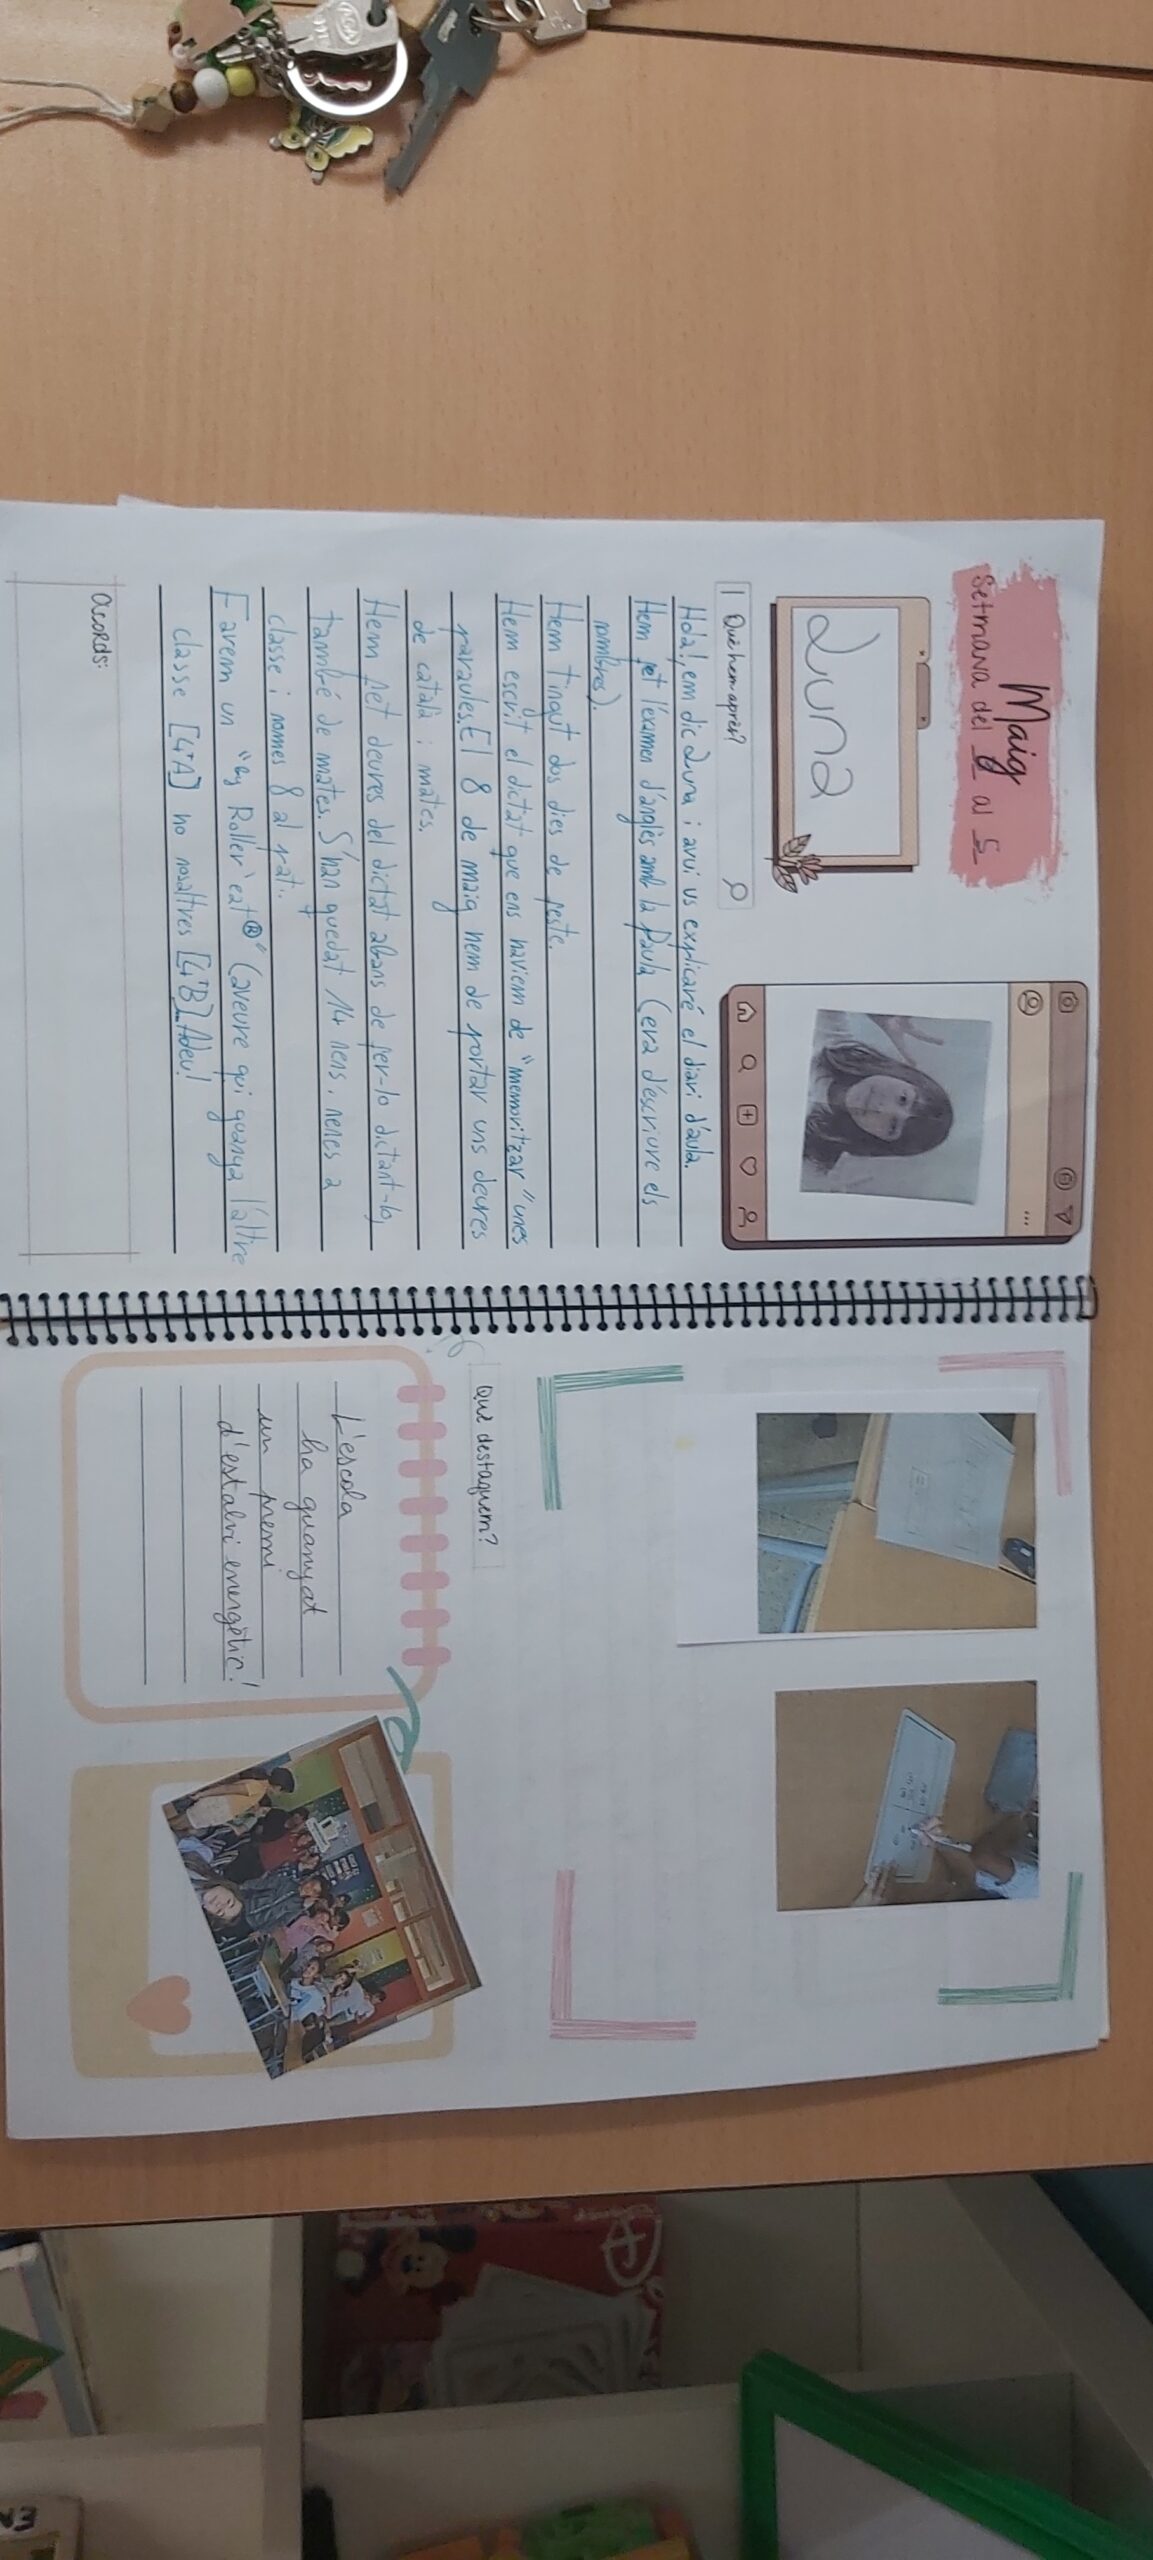 Maig
Setmana del 6 al 5
Luna
Què hem après?
Hola!, em dic Luna i avui us explicaré el diari d'aula.
Hem fet l'éxamen d'anglès amb la Paula (era d'escriure els
nombres).
Hem tingut dos dies de feste.
Hem escrit el dictat que ens haviem de "memoritzar" unes
paraules. El 8 de maig hem de portar uns deures
de català i mates.
Hem fet deures del dictat abans de fer-lo dictant-lo,
també de mates. S'han quedat 14 nens i nenes a
classe i nomes 8 al pati.
Farem un "by Roller eat®" (aveure qui guanya l'altre
classe [4tA] ho nosaltres [4tB]. Adeu!
acords:
Què destaquem?
L'escola
ha guanyat
un premi
d'estalvi energètic!